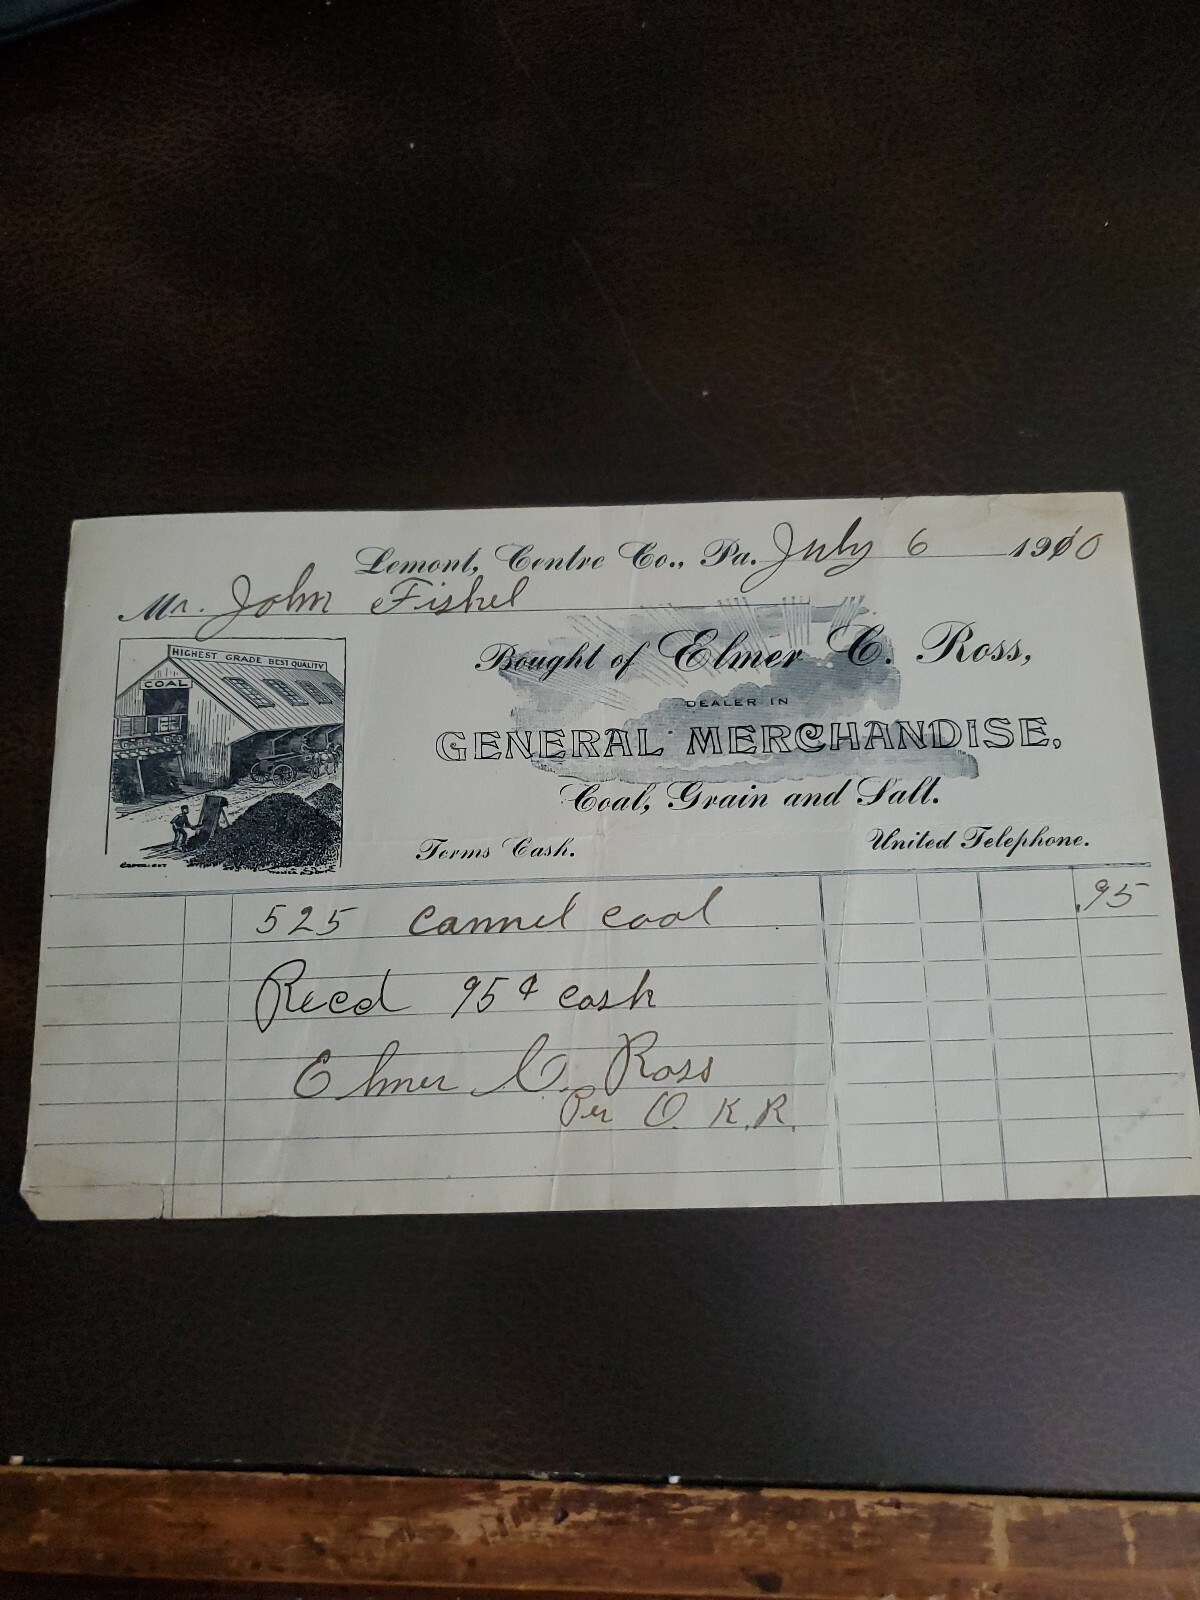 Lemont, Centre Co., Pa. July 6 1910
Mr. John Fishel
HIGHEST GRADE BEST QUALITY
COAL
COPYRIGHT
Bought of Elmer C. Ross,
DEALER IN
GENERAL MERCHANDISE.
Coal, Grain and Salt.
Terms Cash.
United Telephone.
525 Cannel coal .95
Recd 95¢ cash
Elmer C. Ross
Per O. K. R.